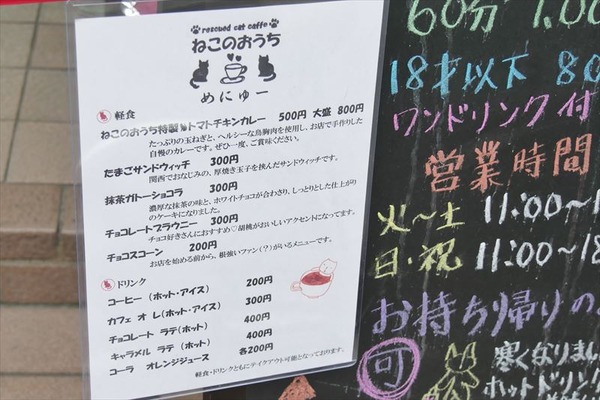 rescued cat caffe
ねこのおうち
めにゅー
軽食
ねこのおうち特製トマトチキンカレー 500円 大盛 800円
たっぷりの玉ねぎと、ヘルシーな鳥胸肉を使用し、お店で手作りした
自慢のカレーです。ぜひ一度、ご賞味ください。
たまごサンドウィッチ 300円
関西でおなじみの、厚焼き玉子を挟んだサンドウィッチです。
抹茶ガトーショコラ 300円
濃厚な抹茶の味と、ホワイトチョコが合わさり、しっとりとした仕上がり
のケーキになりました。
チョコレートブラウニー 300円
チョコ好きさんにおすすめ♡胡桃がおいしいアクセントになってます。
チョコスコーン 200円
お店を始める前から、根強いファン(?)がいるメニューです。
ドリンク
コーヒー (ホット・アイス) 200円
カフェ オ レ(ホット・アイス) 300円
チョコレート ラテ(ホット) 400円
キャラメル ラテ (ホット) 400円
コーラ オレンジジュース 各200円
軽食・ドリンクともにテイクアウト可能となっております。
60分 1,00
18才以下 80
ワンドリンク付
営業時間
火〜土 11:00〜1
日・祝 11:00〜18
お持ち帰りの
可
寒くなりまし
ホットドリン